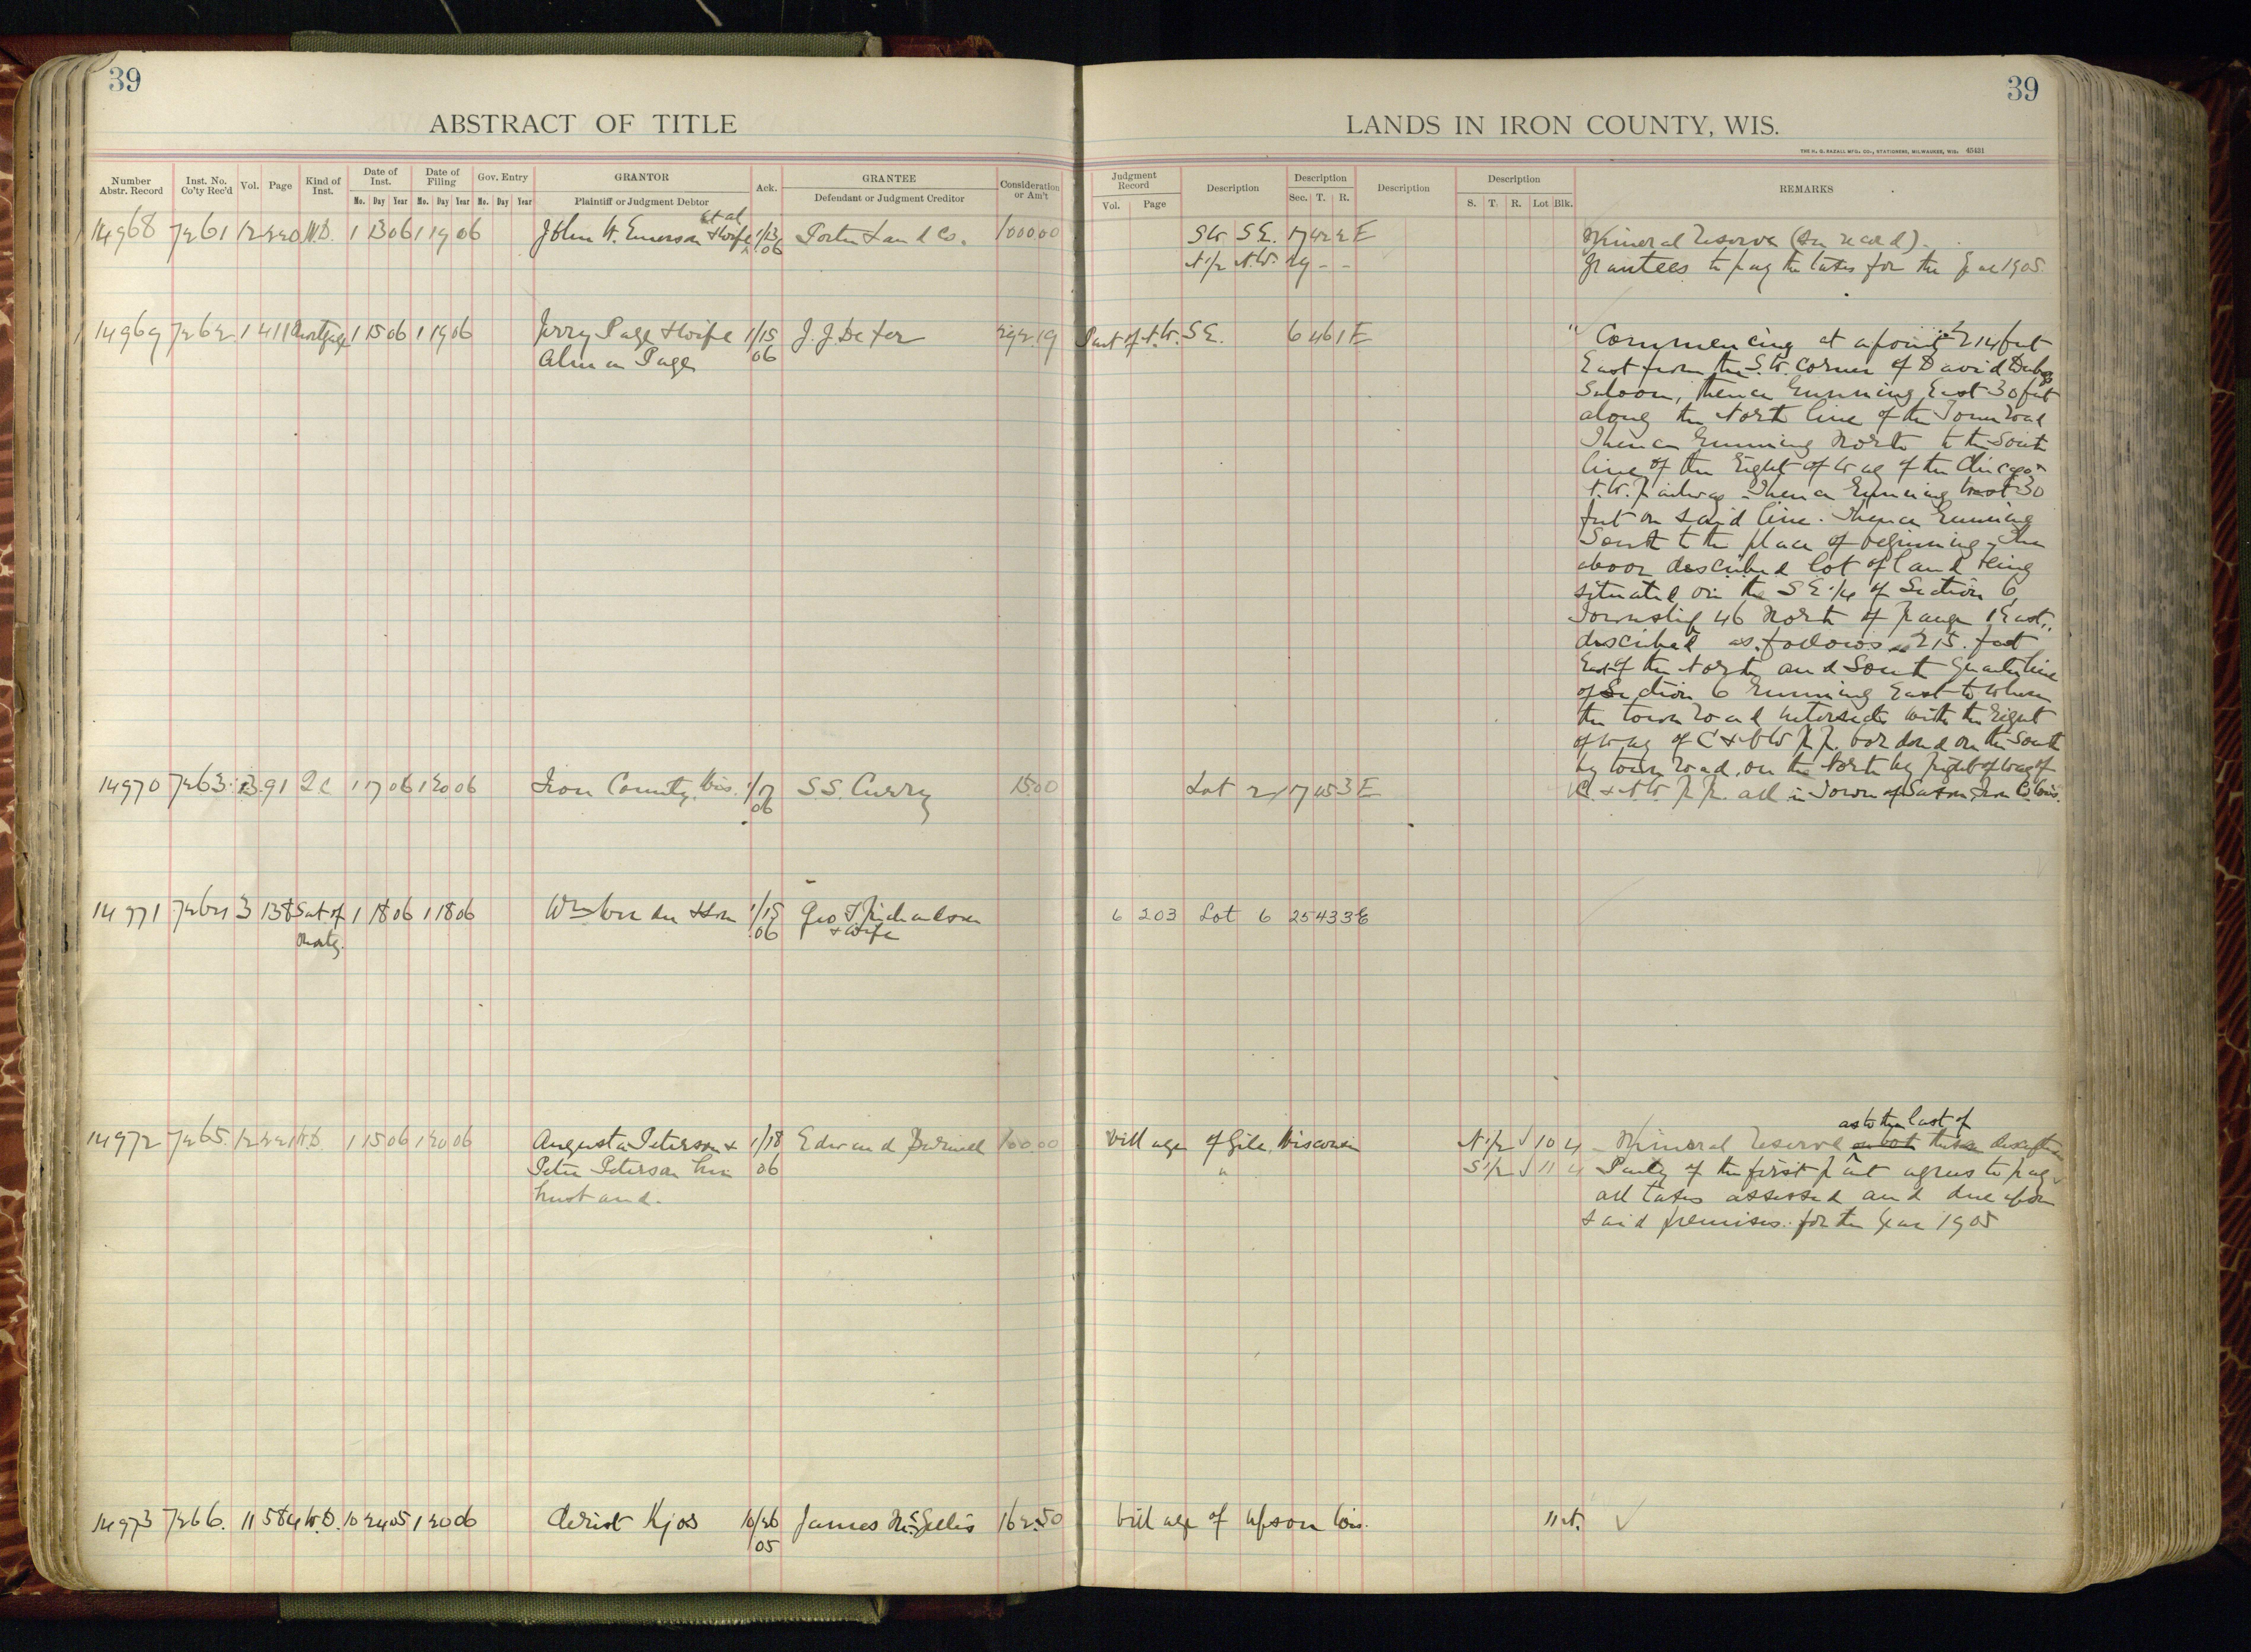 39
ABSTRACT OF TITLE
Number Abstr. Record Inst. No. Co'ty Rec'd Vol. Page Kind of Inst. Date of Inst. Date of Filing Gov. Entry GRANTOR Ack. GRANTEE Consideration or Am't
Mo. Day Year Mo. Day Year Mo. Day Year Plaintiff or Judgment Debtor Defendant or Judgment Creditor
et al
14968 7261 12 220 W.D. 1 13 06 1 19 06 John W. Emerson & wife 1/13 Land Co. 1000.00
06
14969 7262 1 411 Mortgage 1 15 06 1 19 06 Jerry Page & wife 1/15 J. J. Defer 292.19
Alma Page 06
14970 7263 13 91 2c 1 17 06 1 20 06 Iron County, Wis. 1/17 S.S. Curry 15.00
06
14971 7264 3 138 Sat. of 1 18 06 1 18 06 & Son Geo T. Richardson
Mortg. 06 & wife
14972 7265 12 221 W.D. 1 15 06 1 20 06 Augusta Peterson & 1/18 Edward 100.00
Peter Peterson her 06
husband.
14973 7266. 11 584 W.D. 10 24 05 1 20 06 Christ Kjos 10/26 James McGillis 162.50
05
39
LANDS IN IRON COUNTY, WIS.
THE H. G. RAZALL MFG. CO., STATIONERS, MILWAUKEE, WIS. 45431
Judgment Record Description Description Description Description REMARKS
Vol. Page Sec. T. R. S. T. R. Lot Blk.
SW. SE. 17 42 2 E Mineral reserve (See record).
N1/2 N.W. 29 - - Grantees to pay the taxes for the year 1905.
Part of N.W. SE. 6 46 1 E " Commencing at a point 214 feet
East from the S.W. corner of David
Saloon, thence running East 30 feet
along the North line of the Town road
Thence running North to the South
line of the right of way of the Chicago &
N.W. Railway. Thence running West 30
feet on said line. Thence running
South to the place of beginning. The
above described lot of land being
situated on the SE 1/4 of Section 6
Township 46 North of Range 1 East,
described as follows 215 feet
East of the North and South quarter line
of Section 6 running East to where
the town road intersects with the right
of way of C & NW R.R. on the South
by town road, on the North by right of way of
Lot 2 17 45 3 E C. & N.W. R.R. all in Town of Saxon, Iron Co Wis.
6 203 Lot 6 25 43 3 E
as to the last of
Village of Gile, Wisconsin N1/2 10 4 Mineral reserve these
" S1/2 11 4 Party of the first part agrees to pay
all taxes assessed and due upon
said premises for the year 1905
Village of Upson Wis. 11